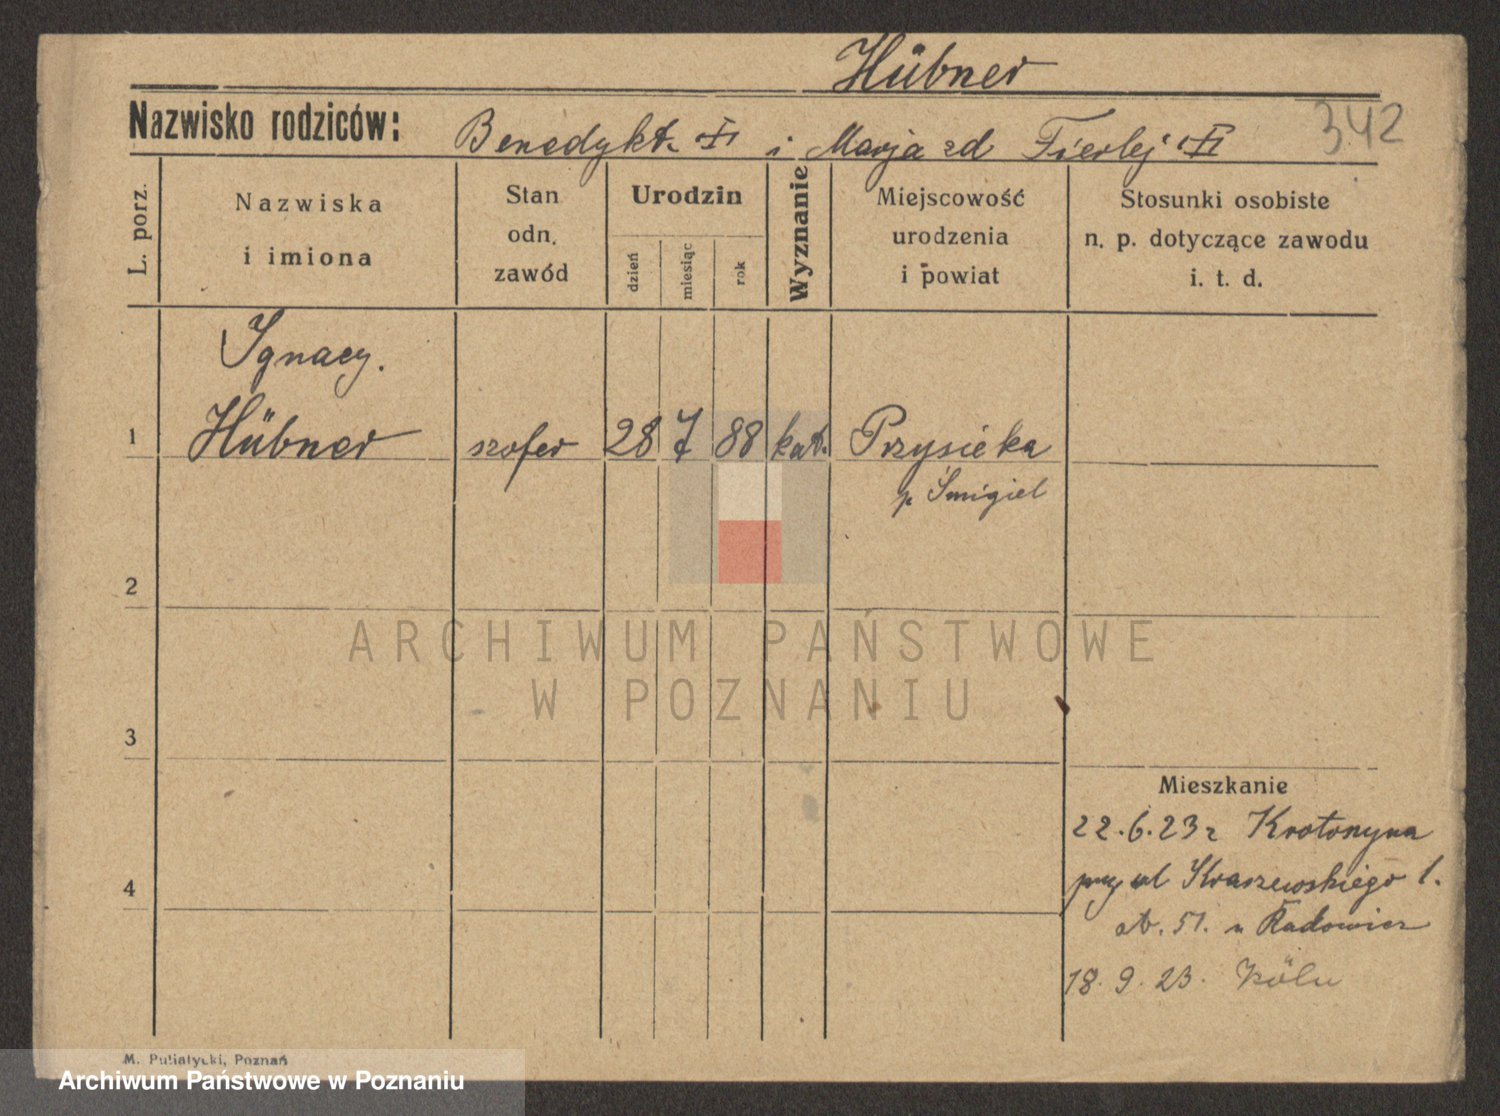 Hübner
Nazwisko rodziców: Benedykt i Marja zd Fierlej
342
L. porz.
Nazwiska
i imiona
Stan
odn.
zawód
Urodzin
dzień
miesiąc
rok
Wyznanie
Miejscowość
urodzenia
i powiat
Stosunki osobiste
n. p. dotyczące zawodu
i. t. d.
Ignacy.
1 Hübner szofer 28 7 88 kat. Przysieka
p. Śmigiel
2
ARCHIWUM PAŃSTWOWE
W POZNANIU
3
Mieszkanie
22.6.23 r Krotoszyna
przy ul Kraszewskiego 1.
4
st. 51. u Radowicz
18. 9. 23. Köln
M. Puliatycki, Poznań
Archiwum Państwowe w Poznaniu